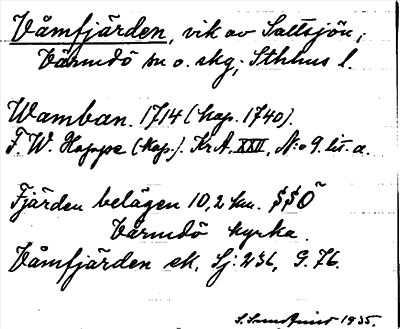 Våmfjärden, vik av Saltsjön,
Värmdö sn o. skg, Sthlms l.
Wamban. 1714 (kop. 1740).
F. W. Hoppe (kop.). Kr A. XXII, N:o 9. lit. a.
Fjärden belägen 10,2 km. SSÖ
Värmdö kyrka.
Våmfjärden ek. Sj: 236, G. 76.
1935.